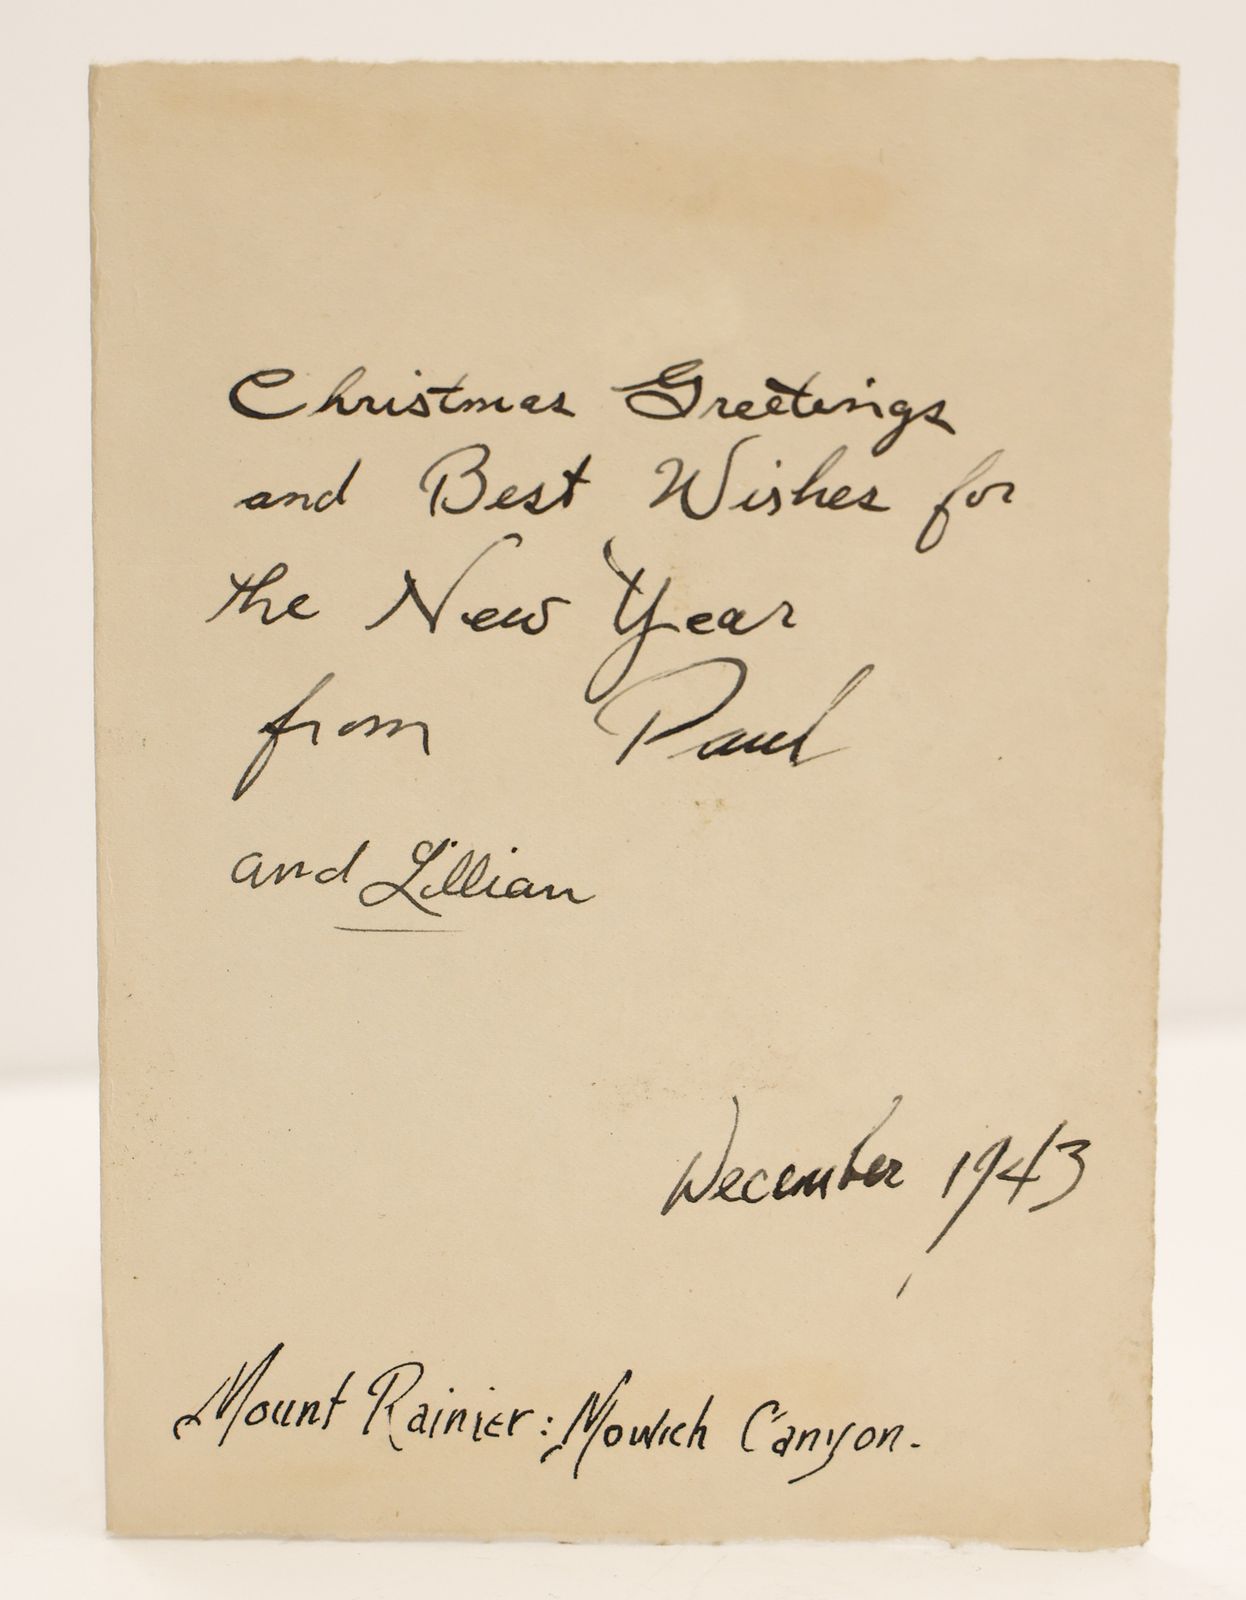 Christmas Greetings
and Best Wishes for
the New Year
from Paul
and Lillian
December 1943
Mount Rainier: Mowich Canyon.